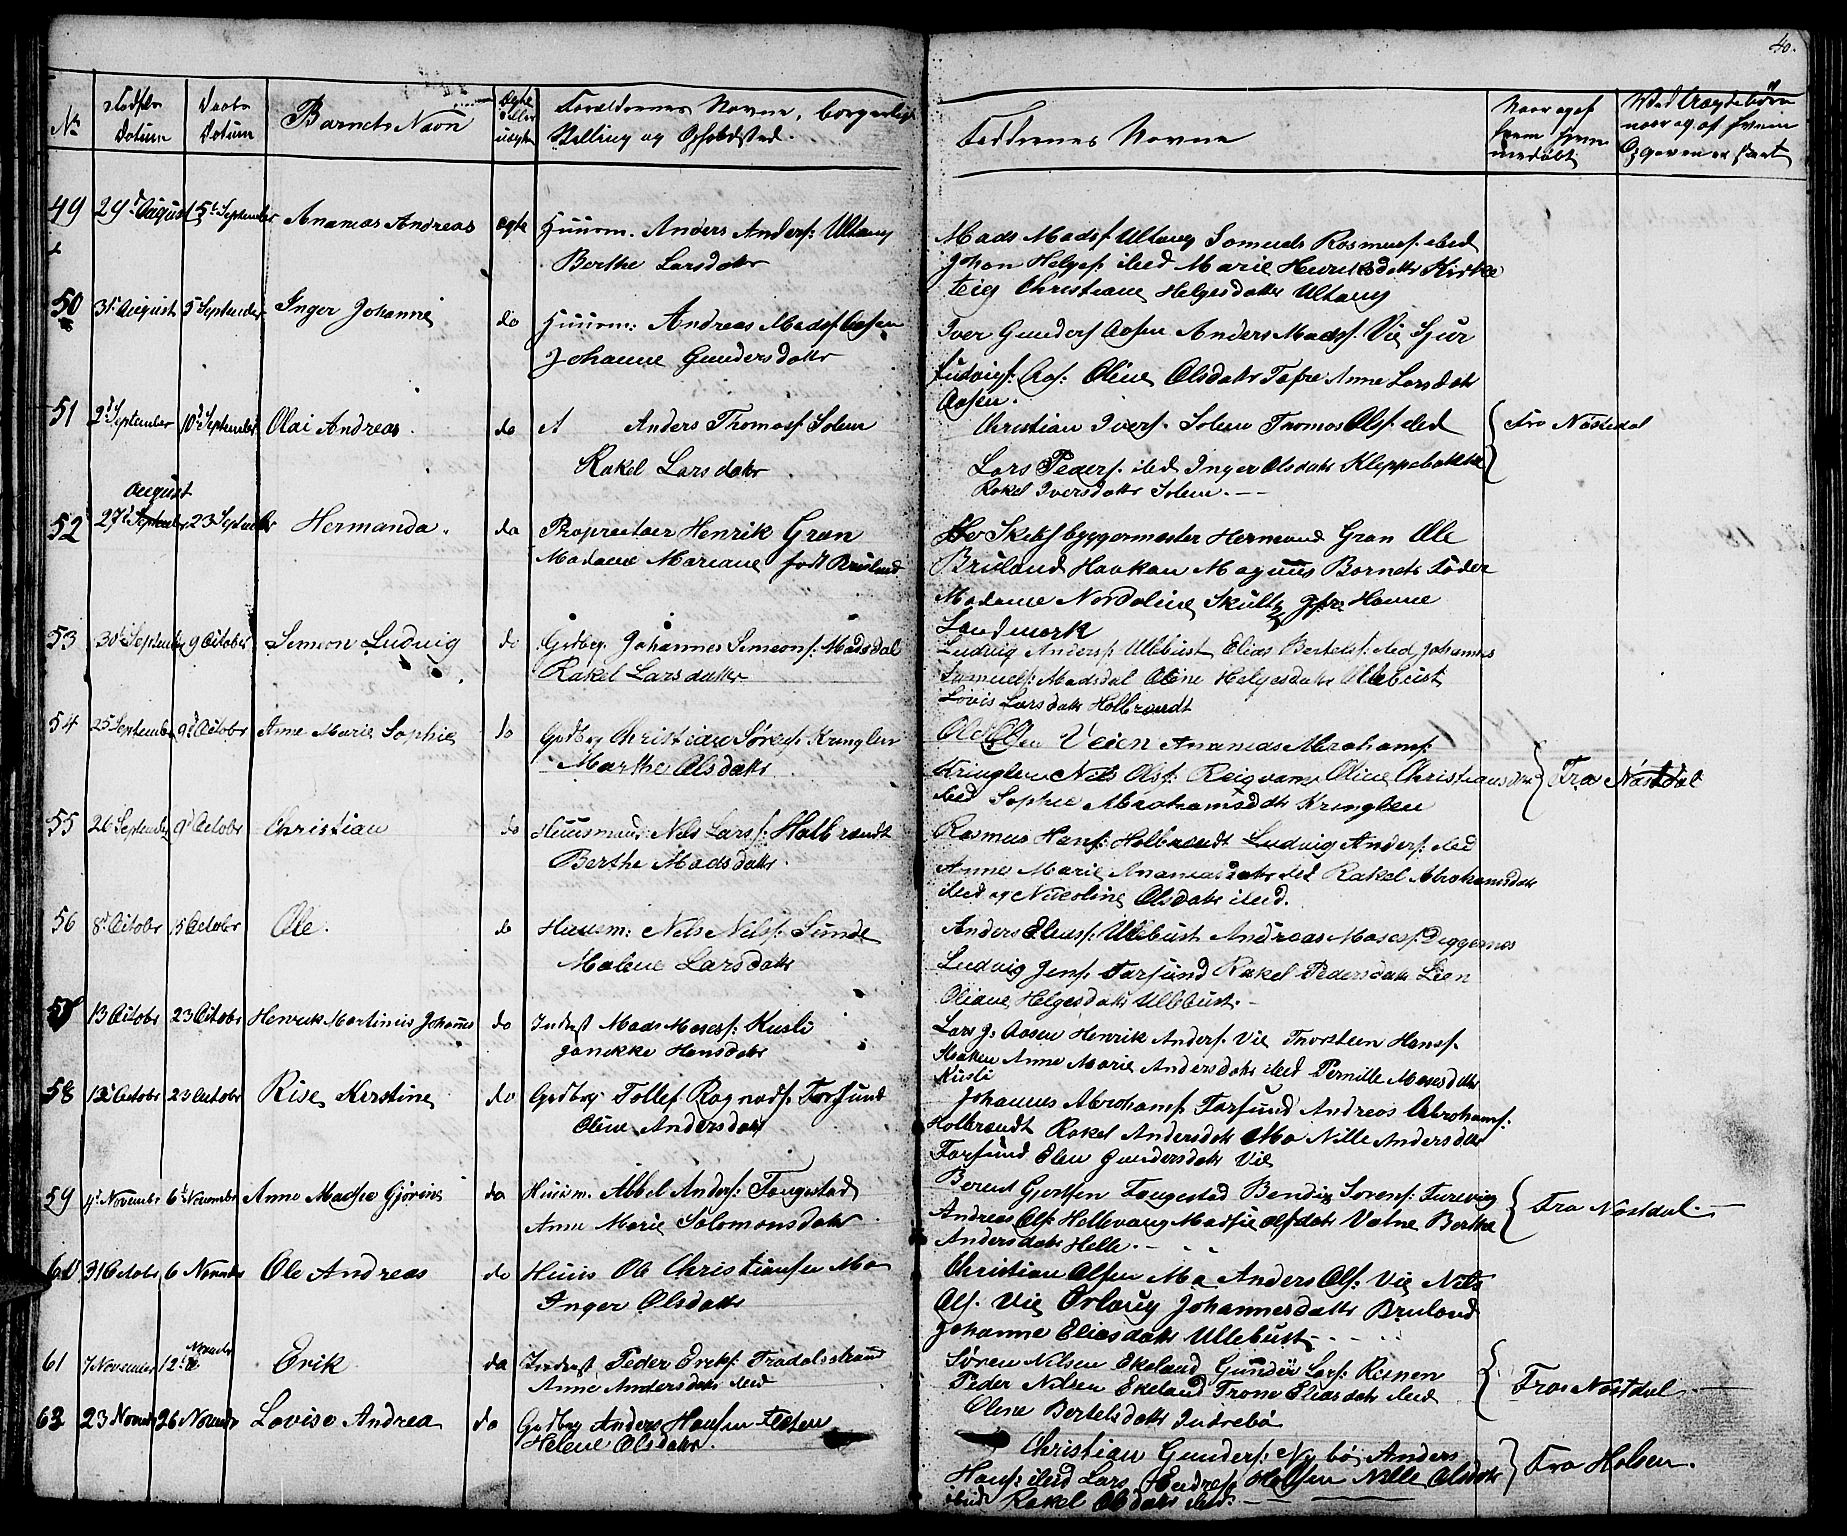 40.
No
Fødsels Datum
Daabs Datum
Barnets Navn
Ægte eller uægte
Forældrenes Navne, borgerlige Stilling og Opholdsted.
Faddernes Navne
Naar og af hvem hjemmedøbt
49 29d August 5te September Ananias Andreas ægte Huusm. Anders Anders: Ultang
Berthe Larsdatr
Mads Mads: Ultang Samuels Rasmus: ibid
Johan Helges: ibid Marie Henriksdatr Kirke
teig Christiane Helgesdatter Ultang
50 31 August 5 September Inger Johanne do Huusm: Andreas Mads: Aasen
Johanne Gundersdatr
Iver Gunders Aasen Anders Mads: Vie Sjur
Ludvigs: Aas: Oline Olsdatr Tefre Anne Larsdatr
Aasen.
51 2d September 10d September Olai Andreas. do A Anders Thomas: Solem
Rakel Larsdatr
Christian Ivers: Solem Tomas Ols: ibid
Lars Peders: ibid Inger Olsdatr Kleppebakke
Rakel Iversdatr Solem. —
Fra Nastedal
52 27d August 23 September Hermanda. do Proprietair Henrik Gran
Madame Mariane født Bruland
Hr Skibsbyggermester Hermand Gran Ole
Bruland Haakon Magnus Barnets Fader
Madame Nordoline Skulty Jfr Hanne
Landmark
53 30d September 9 October Simeon Ludvig do Grdbrg. Johannes Simeons: Madsdal
Rakel Larsdatter
Ludvig Anders: Ullebust Elias Bertels: ibid Johannes
Samuels: Madsdal Oline Helgesdatr Ullebust
Lovis Larsdatr Holbrandt
54 25 September 9d Octobr Anne Marie Sophie do Grdbrg Christian Sørens: Kringlen
Marthe Olsdatr
Veien Ananias Abrahams:
Kringlen Nils Ols: Reigvam Oline Christiansdtr
ibid Sophie Abrahamsdtr Kringlen
Fra Nastdal
55 26 September 9d Octobr Christian do Huusmand Nils Lars: Holbrandt
Berthe Madsdatr.
Rasmus Hans: Holbrandt Ludvig Anders: ibid
Anne Marie Ananiasdatr ibid Rakel Abrahamsdatr
ibid og Nicoline Olsdatr ibid.
56 8d Octobr 15 Octobr Ole. do Huusm: Nils Nils: Sunde
Malene Larsdatr
Anders Elias: Ullebust Andreas Moses: Diggernes
Ludvig Jens: Farsund Rakel Pedersdatr Lien
Oliane Helgesdatr Ullebust. -
57 13 Octobr 23 Octobr Henrik Martinus Johannes do Inderst Mads Moses: Kusli
Janikke Hansdatr
Lars J: Aasen Henrik Anders: Vie Thorsteen Hans:
Anne Marie Andersdatr ibid Pernille Mosesdatr
Kusli
58 12d Octobr 23 Octobr Rise Kirstine do Grdbrg. Tollef Ragnvads: Farsund
Oline Andersdatr
Johannes Abrahams: Farsund Andreas Abrahams:
Holbrandt Rakel Andersdatr Mo Nille Andersdtr
Farsund Elen Gundersdatr Vie
59 4d Novembr 6d Novembr Anne Madsie Gjørine do Huusm. Abbel Anders: Fougestad
Anne Marie Salomonsdatr.
Berent Gjertsen Fougestad Bendix Sorens: Fureviig
Andreas Ols: Hellevang Madsie Olsdatr Vatne Berthe
Andersdatr Helle. -
Fra Nastdal. -
60 31 Octobr 6 Novmbr Ole Andreas do Huus Ole Christiansen Mo
Inger Olsdatr
Christian Olsen Mo Anders Ols: Vie Nils
Ols. Vie Orlaug Johannesdatr Bruland
Johanne Eliasdatr Ullebust. -
61 7 November 12 Novmbr Erik do Inderst Peder Eriks: Fradalsstrand
Anne Andersdatr ibid
Søren Nilsen Ekeland Gunder Lars: Reinen
Peder Nilsen Ekeland Trone Eliasdatr ibid
Oline Bertelsdatr Indrebø
Fra Nastdal -
62 23 Novmbr 26 Novmbr Lovise Andrea do Grdbrg Anders Hansen
Helene Olsdatr.
Christian Gunders: Nybø Anders
Hans: ibid Lars Endres: Holsen Nille Olsdatr
ibid Rakel Olsdatr ibid. —
Fra Holsen.